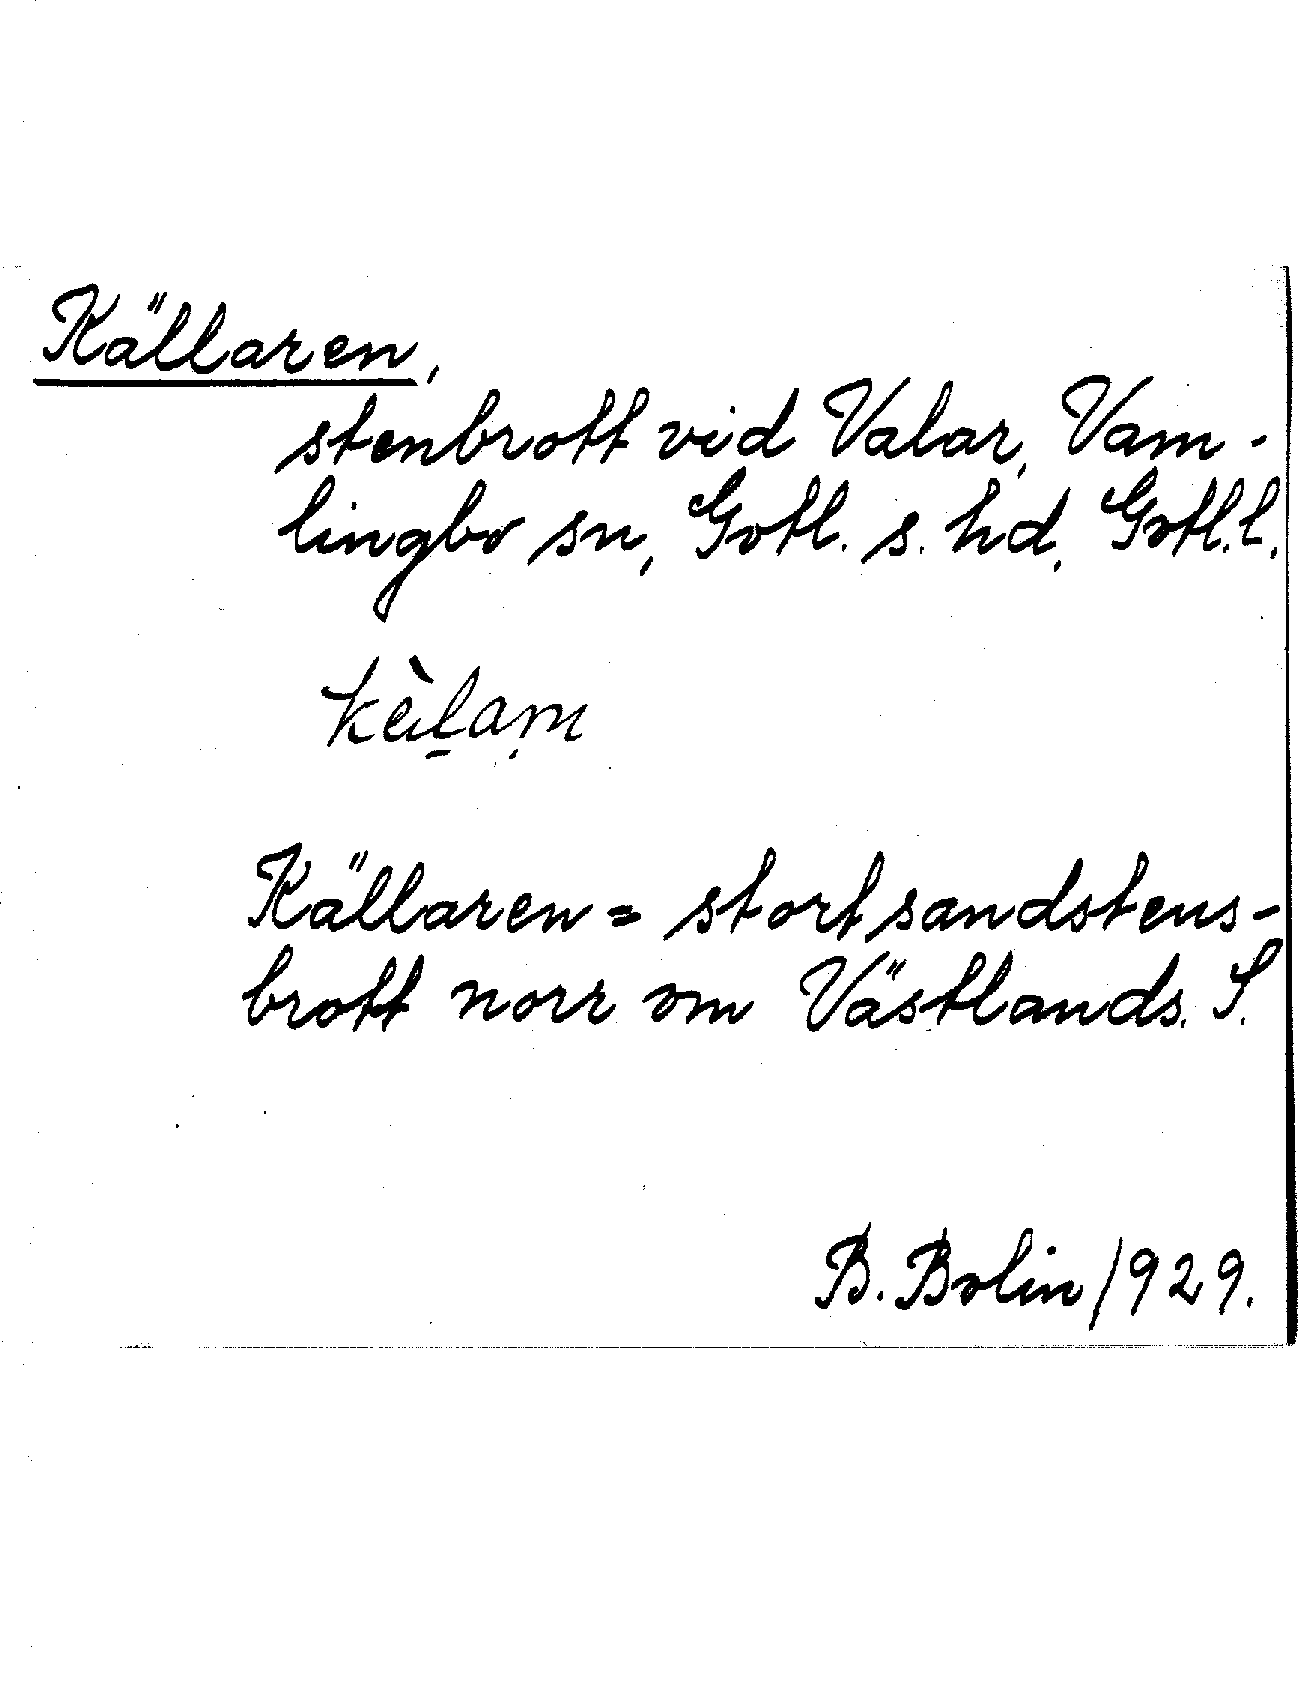 Källaren,
stenbrott vid Valar, Vam-
lingbo sn, Gotl. s. hd, Gotl. l.
kèḻaṃ
Källaren = stort sandstens-
brott norr om Västlands. S.
B. Bolin/1929.